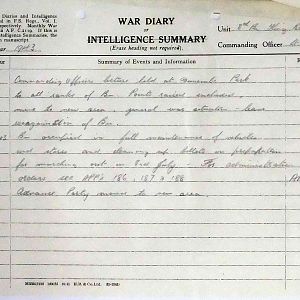 Diaries and Intelligence
ed in F.S. Regs., Vol. I.
pectively. Monthly War
n A.F. C.2119. If this is
elligence Summaries, the
n manuscript)
WAR DIARY
or
INTELLIGENCE SUMMARY
(Erase heading not required).
Unit
Commanding Officer
1943
Summary of Events and Information
Commanding Officers lecture held at Park
to all ranks of Bn Points raised included
move to new area general war situation leave
reorganisation of Bn.
Bn occupied in full maintenance of vehicles
and stores and cleaning up billets in preparation
for marching out on 3rd July For administration
orders see APP's 186, 187 & 188
Advance Party moves to new area.
H.B. & Co.Ltd.